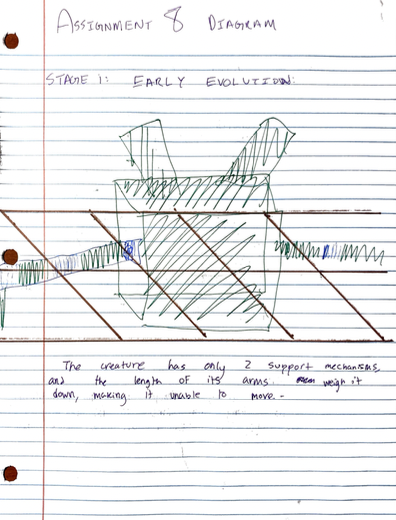 ASSIGNMENT 8 DIAGRAM
STAGE 1: EARLY EVOLUTION:
The creature has only 2 support mechanisms,
and the length of its arms weigh it
down, making it unable to move.-